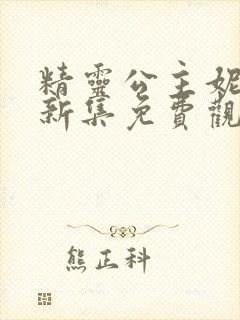 精靈公主妮
新集免費觀
熊正科